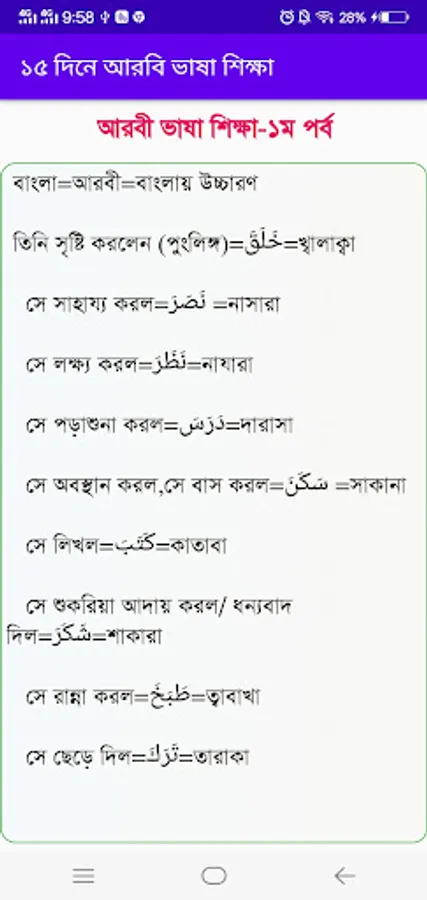 9:58
28%
১৫ দিনে আরবি ভাষা শিক্ষা
আরবী ভাষা শিক্ষা-১ম পর্ব
বাংলা=আরবী=বাংলায় উচ্চারণ
তিনি সৃষ্টি করলেন (পুংলিঙ্গ)=خَلَقَ=খ্বালাক্বা
সে সাহায্য করল=نَصَرَ =নাসারা
সে লক্ষ্য করল=نَظَرَ=নাযারা
সে পড়াশুনা করল=دَرَسَ=দারাসা
সে অবস্থান করল,সে বাস করল=سَكَنَ =সাকানা
সে লিখল=كَتَبَ=কাতাবা
সে শুকরিয়া আদায় করল/ ধন্যবাদ
দিল=شَكَرَ=শাকারা
সে রান্না করল=طَبَخَ=ত্বাবাখা
সে ছেড়ে দিল=تَرَكَ=তারাকা